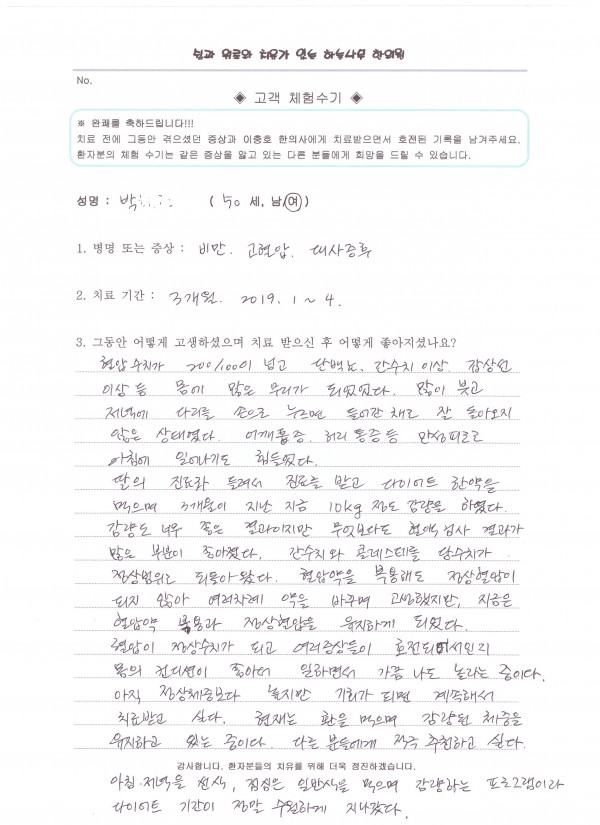 No.
◈ 고객 체험수기 ◈
※ 완쾌를 축하드립니다!!!
치료 전에 그동안 겪으셨던 증상과 이충호 한의사에게 치료받으면서 호전된 기록을 남겨주세요.
환자분의 체험 수기는 같은 증상을 앓고 있는 다른 분들에게 희망을 드릴 수 있습니다.
성명 : 박 ( 50 세, 남/여 )
1. 병명 또는 증상 : 비만. 고혈압. 대사증후
2. 치료 기간 : 3개월. 2019. 1 ~ 4.
3. 그동안 어떻게 고생하셨으며 치료 받으신 후 어떻게 좋아지셨나요?
혈압수치가 200/100이 넘고 단백뇨, 간수치이상. 갑상선
이상 등 몸에 많은 무리가 되었었다. 많이 붓고
저녁에 다리를 손으로 누르면 들어간 채로 잘 돌아오지
않은 상태였다. 어깨통증, 허리통증 등 만성피로로
아침에 일어나기도 힘들었다.
딸의 들려서 진료를 받고 다이어트 한약을
먹으며 3개월이 지난 지금 10kg 정도 감량을 하였다.
감량도 너무 좋은 결과이지만 무엇보다도 혈액검사 결과가
많은 부분이 좋아졌다. 간수치와 콜레스테롤 당수치가
정상범위로 되돌아왔다. 혈압약을 복용해도 정상혈압이
되지 않아 여러차례 약을 바꾸며 고생했지만, 지금은
혈압약 복용과 정상혈압을 유지하게 되었다.
혈압이 정상수치가 되고 여러증상들이 호전되어서인지
몸의 컨디션이 좋아서 일하면서 가끔 나도 놀라는 중이다.
아직 정상체중보다 높지만 기회가 되면 계속해서
치료받고 싶다. 현재는 환을 먹으며 감량된 체중을
유지하고 있는 중이다. 다른 분들에게 적극 추천하고 싶다.
감사합니다. 환자분들의 치유를 위해 더욱 정진하겠습니다.
아침·저녁을 선식, 점심은 일반식을 먹으며 감량하는 프로그램이라
다이어트 기간이 정말 수월하게 지나갔다.